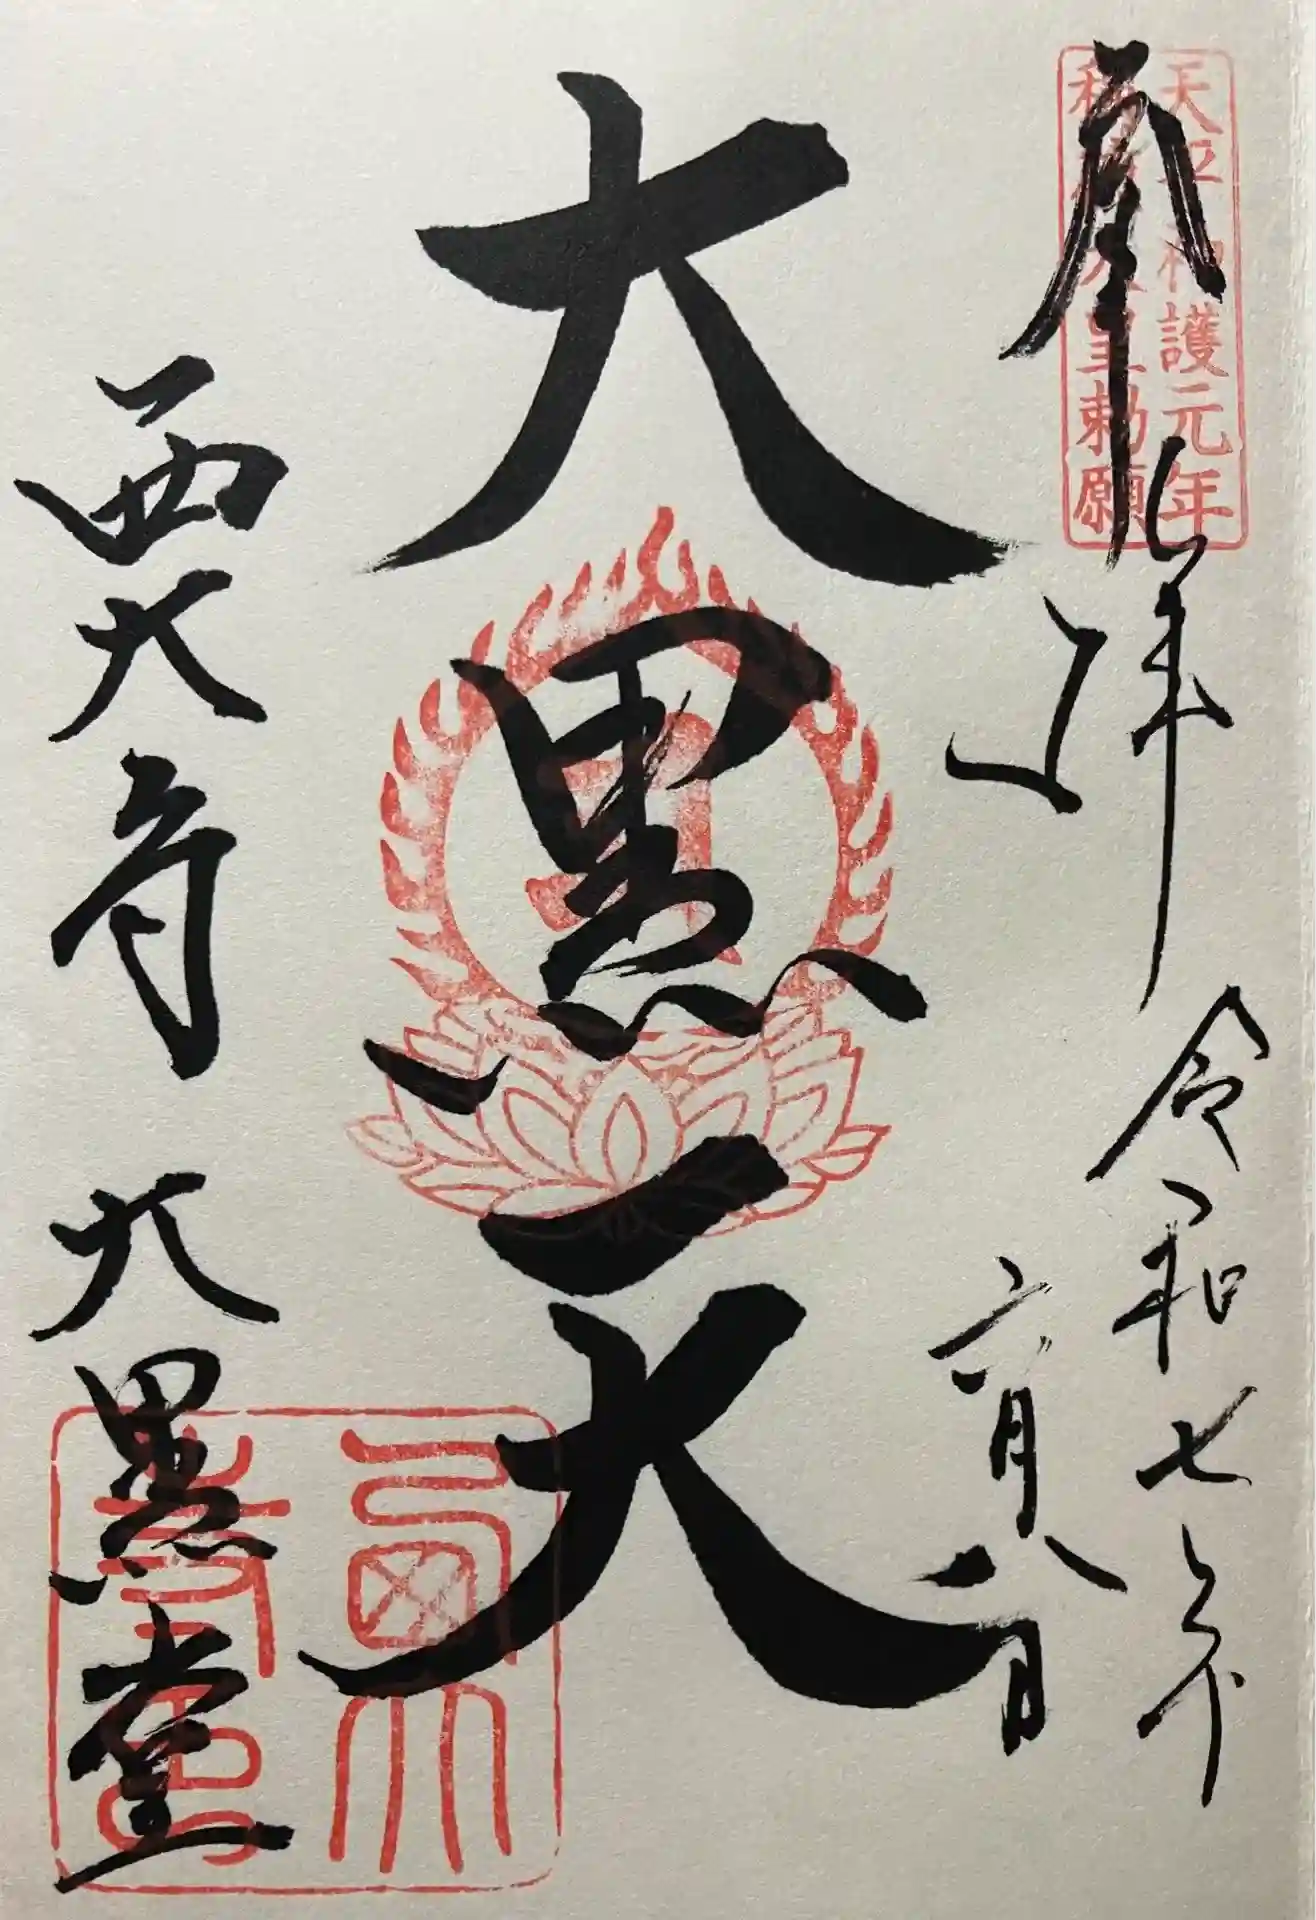 奉拝
天平神護元年
称徳天皇勅願
令和七年
六月八日
大黒天
西大寺 大黒堂